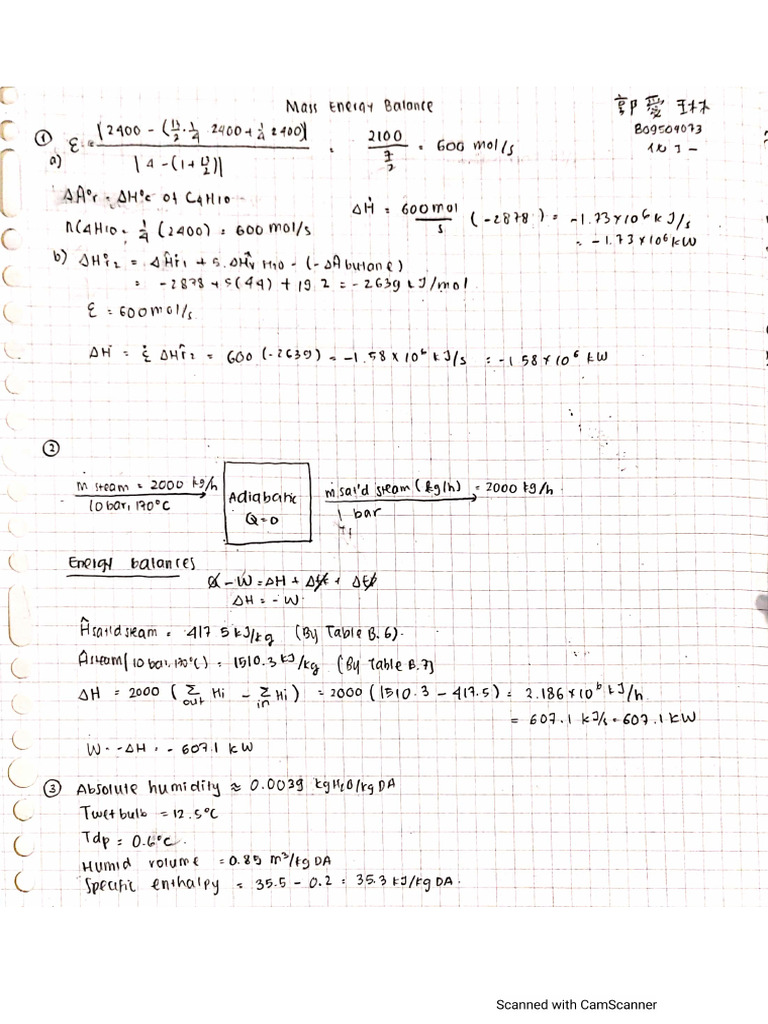 Mass Energy Balance
郭愛琳
B09504073
① a) ε = |2400 - (13/2 · 1/4 · 2400 + 1/4 2400)| / |4 - (1 + 13/2)| = 2100 / 7/2 = 600 mol/s
ΔĤ°r = ΔĤ°c of C4H10
nC4H10 = 1/4 (2400) = 600 mol/s
ΔḢ = 600 mol/s (-2878) = -1.73 × 10⁶ kJ/s
= -1.73 × 10⁶ kW
b) ΔH°r2 = ΔĤ°r1 + 5.ΔĤv H2O - (-ΔĤbutane)
= -2878 + 5(44) + 19.2 = -2639 kJ/mol
ε = 600 mol/s
ΔH = ε ΔH°r2 = 600 (-2639) = -1.58 × 10⁶ kJ/s = -1.58 × 10⁶ kW
②
ṁ steam = 2000 kg/h
10 bar, 170°C
Adiabatic
Q=0
ṁ sat'd steam (kg/h) = 2000 kg/h
1 bar
T1
Energy balances
Q - W = ΔH + ΔEk + ΔEp
ΔH = - W
Ĥsat'd steam = 417.5 kJ/kg (By Table B.6)
Ĥsteam (10 bar, 170°C) = 1510.3 kJ/kg (By table B.7)
ΔH = 2000 (Σout Hi - Σin Hi) = 2000 (1510.3 - 417.5) = 2.186 × 10⁶ kJ/h
= 607.1 kJ/s = 607.1 kW
W = -ΔH = - 607.1 kW
③ Absolute humidity ≈ 0.0039 kg H2O/kg DA
Twet bulb = 12.5°C
Tdp = 0.6°C.
Humid volume = 0.85 m³/kg DA
Specific enthalpy = 35.5 - 0.2 = 35.3 kJ/kg DA.
Scanned with CamScanner